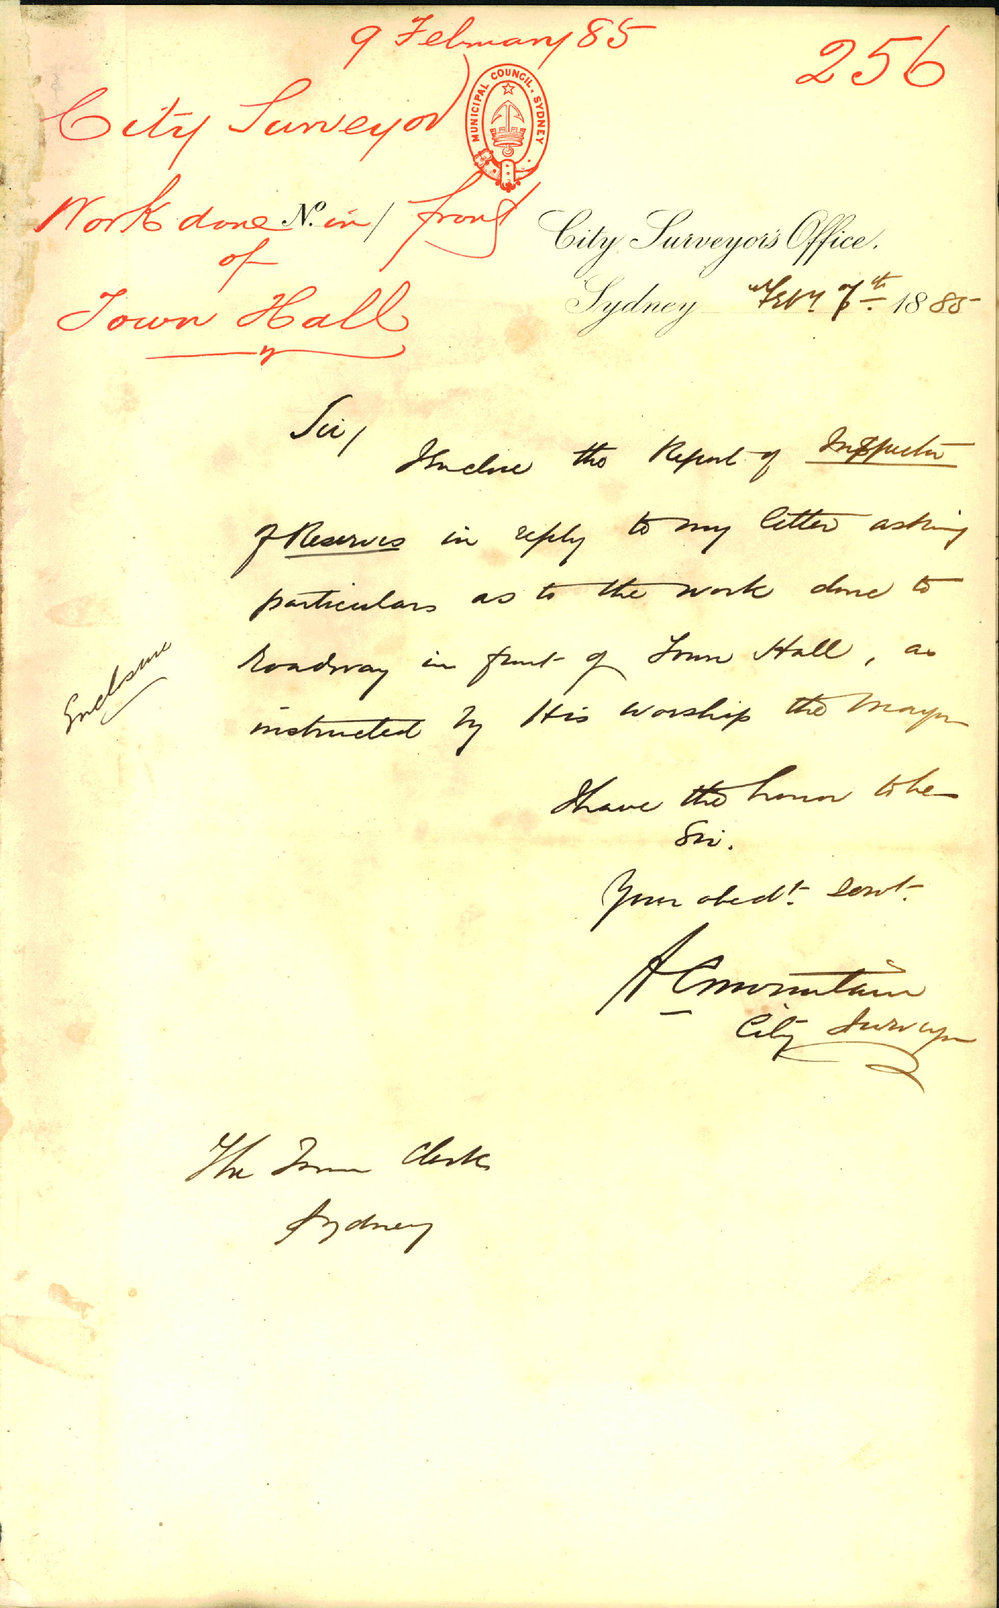 9 February 85
256
City Surveyor
MUNICIPAL COUNCIL. SYDNEY
Work done No. in / front
of
Town Hall
City Surveyor's Office.
Sydney Feby 7th 1885
Sir/
I Enclose the Report of Inspector
of Reserves in reply to my letter asking
particulars as to the work done to
Roadway in front of Town Hall, as
instructed by His Worship the Mayor
Enclosure
I have the honor to be
Sir.
Your obedt. Servt.
A C Mountain
City Surveyor
The Town Clerk
Sydney